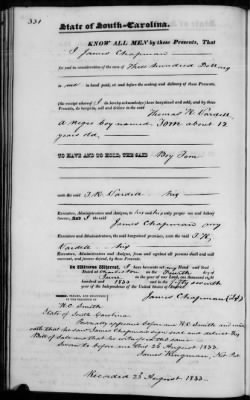 331
State of South-Carolina.
KNOW ALL MEN by these Presents, That
I James Chapman
for and in consideration of the sum of Three hundred Dollars
to me in hand paid, at and before the sealing and delivery of these Presents,
(the receipt whereof I do hereby acknowledge) have bargained and sold, and by these
Presents, do bargain, sell and deliver to the said Thomas H. Cardell
A Negro boy named Tom about 12
years old,
TO HAVE AND TO HOLD, THE SAID Boy Tom
unto the said T. H. Cardell his
Executors, Administrators and Assigns, to his and his only proper use and behoof
forever, And I the said James Chapman my
Executors, Administrators and Assigns, the said bargained premises, unto the said T. H.
Cardell his
Executors, Administrators and Assigns, from and against all persons shall and will
warrant, and forever defend, by these Presents.
In Witness Whereof, I have hereunto set my Hand and Seal
Dated at Charleston on the Fourth day of
June in the year of our Lord, one thousand eight
hundred and 1833 and in the fifty seventh
year of the Independence of the United States of America.
SEALED, AND DELIVERED
IN THE PRESENCE OF
James Chapman (LS)
W. C. Smith
State of South Carolina
Personally appeared before me W. C. Smith and made
oath that he saw James Chapman sign seal and deliver this
Bill of Sale and that he witnessed the same
Sworn to before me this 23 August 1833.
James Kingman, Not. Pub.
Recorded 23d August 1833.